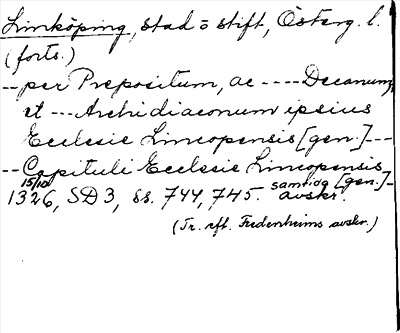 Linköping, stad o stift, Österg. l.
(forts.)
-- per Prepositum, ac ---- Decanum,
et --- Archidiaconum ipsius
Ecclesie Lincopensis [gen.] ---
-- Capituli Ecclesie Lincopensis [gen.] -
15/10 1326, SD 3, ss. 744, 745. samtida avskr.
(Tr. eft. Fredenheims avskr.)